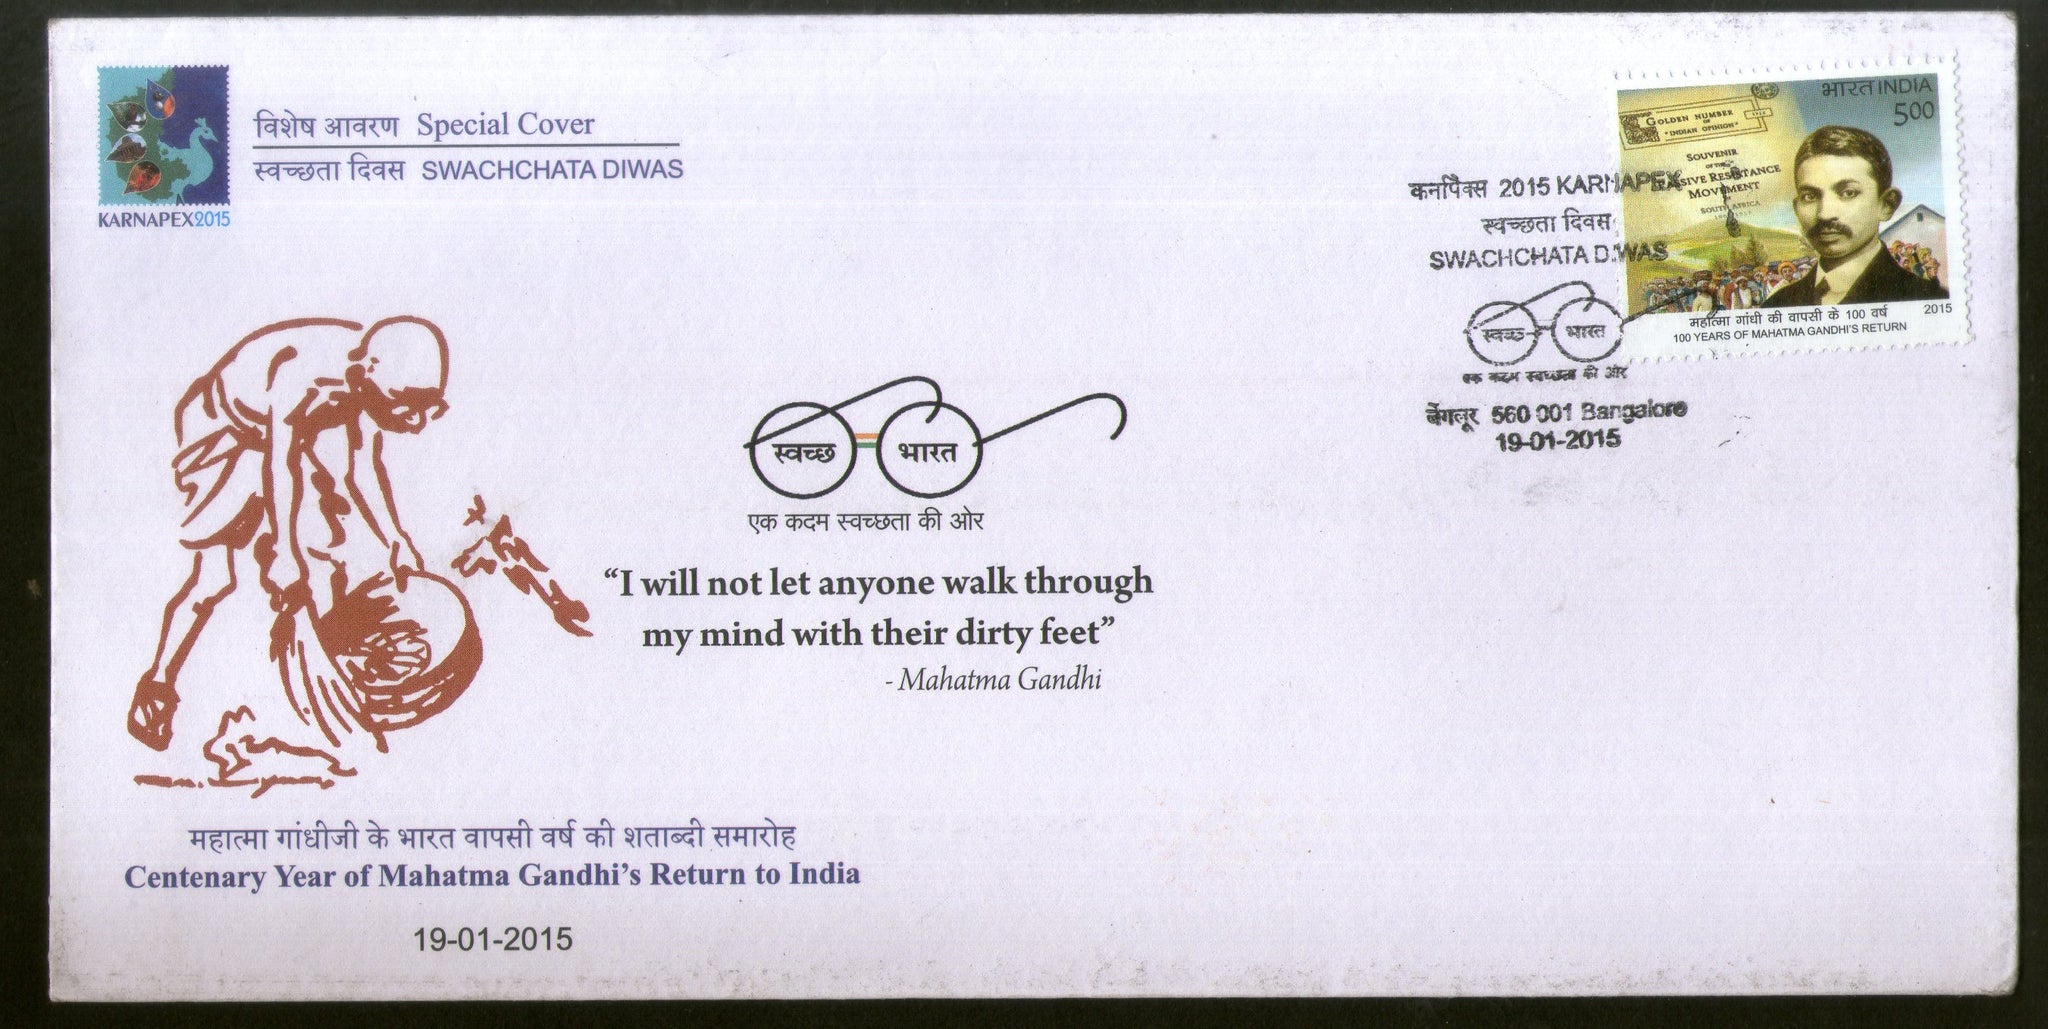 KARNAPEX2015
विशेष आवरण Special Cover
स्वच्छता दिवस SWACHCHATA DIWAS
भारत INDIA
500
GOLDEN NUMBER
OF
"INDIAN OPINION"
1914
SOUVENIR
OF THE
PASSIVE RESISTANCE
MOVEMENT
SOUTH AFRICA
महात्मा गांधी की वापसी के 100 वर्ष 2015
100 YEARS OF MAHATMA GANDHI'S RETURN
कर्नापेक्स 2015 KARNAPEX
स्वच्छता दिवस
SWACHCHATA DIWAS
स्वच्छ भारत
एक कदम स्वच्छता की ओर
बेंगलूर 560 001 Bangalore
19-01-2015
स्वच्छ भारत
एक कदम स्वच्छता की ओर
“I will not let anyone walk through
my mind with their dirty feet”
- Mahatma Gandhi
महात्मा गांधीजी के भारत वापसी वर्ष की शताब्दी समारोह
Centenary Year of Mahatma Gandhi’s Return to India
19-01-2015